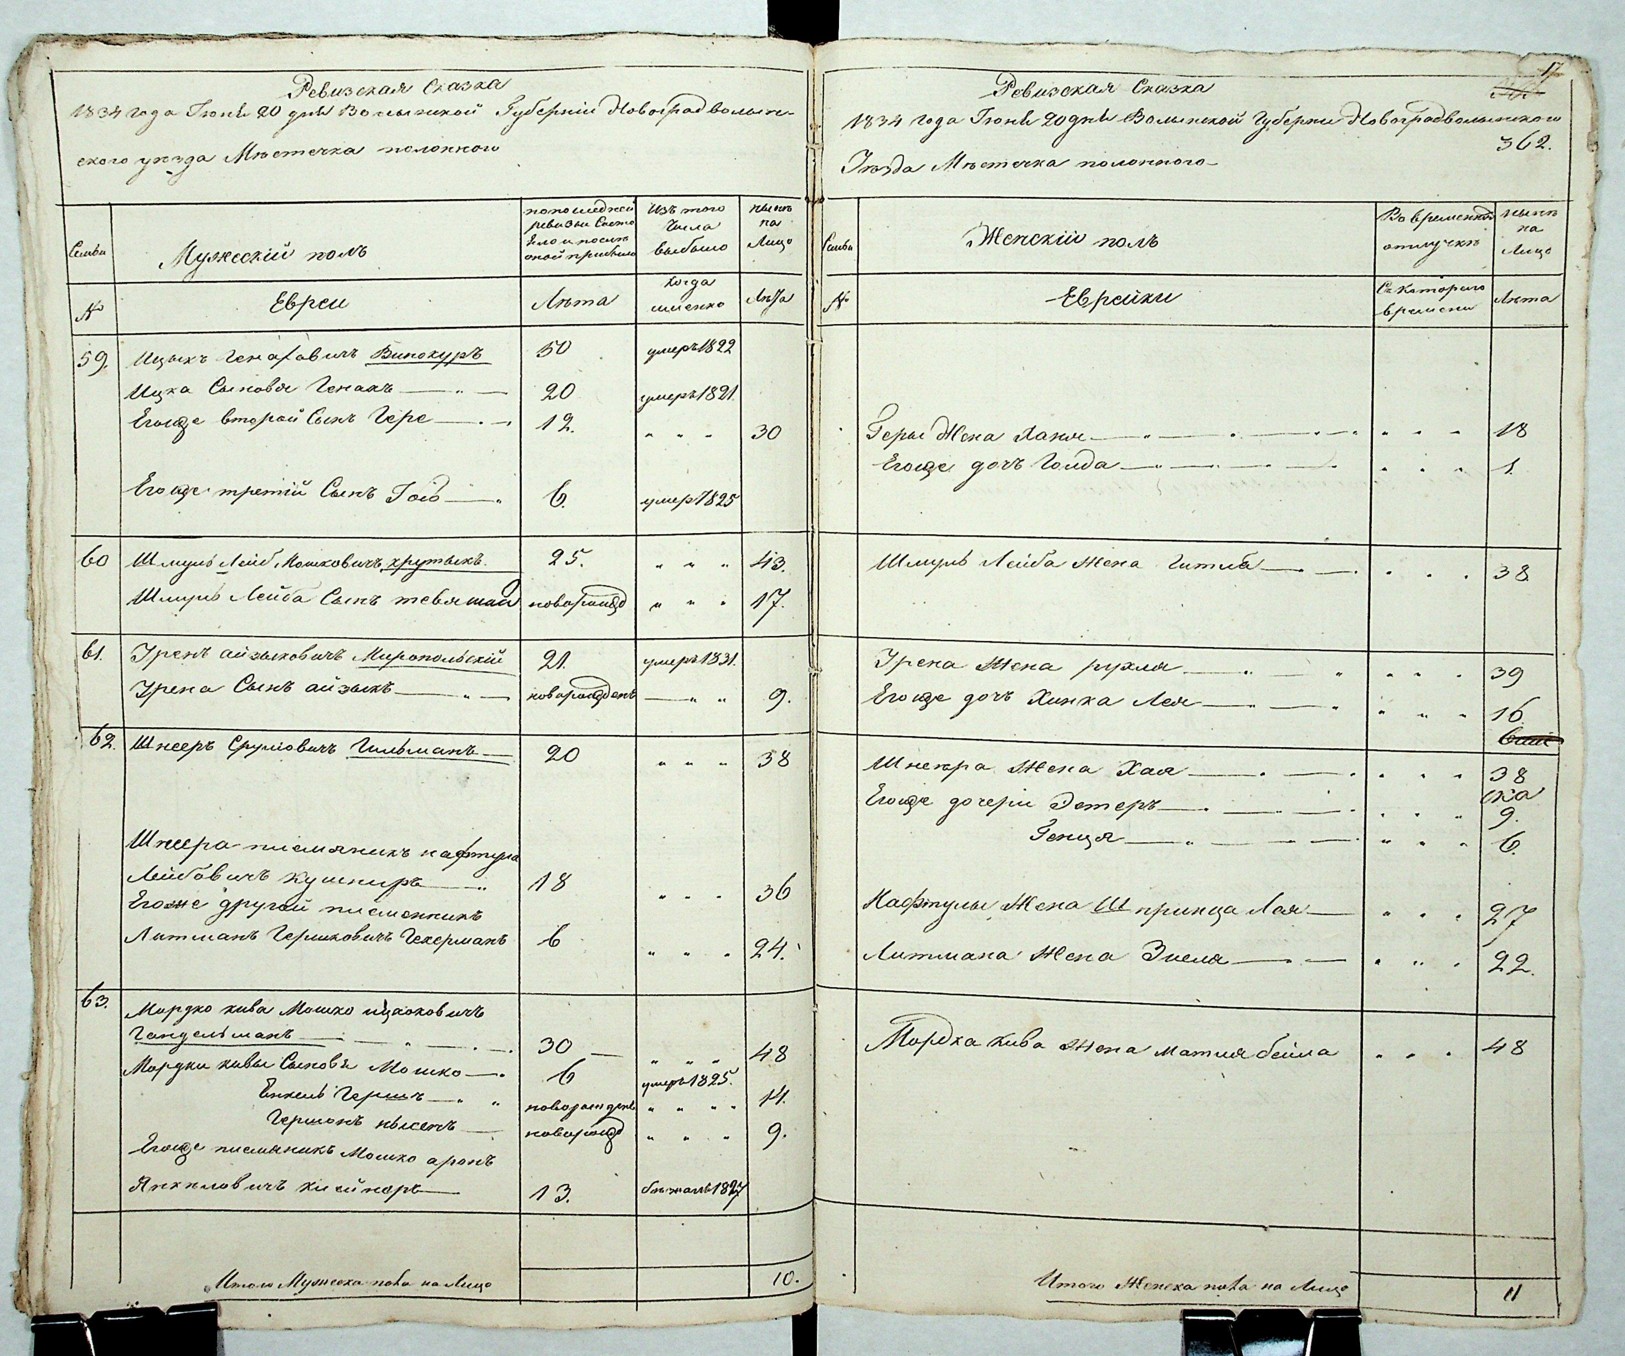 Ревизская Сказка
1834 года Іюня 20 дня Волынской Губерніи Новоградволын-
ского уѣзда Мѣстечка полонного
Семьи
Мужескій полъ
по последней ревизіи Состо яло и послѣ оной прибыло
Изъ того Числа выбыло
нынѣ на Лицо
№
Евреи
Лѣта
когда именно
Лѣта
59. Ицыкъ Генаховичъ Винокуръ 50 умеръ 1822
Ицка Сыновья Генахъ 20 умеръ 1821.
Егоже второй Сынъ Гере 12. " " " 30
Егоже третій Сынъ 6. умеръ 1825
60 Шмуль Лейб Мошковичъ хрутыкъ 25. " " " 43.
Шмуль Лейба Сынъ новорожд " " " 17.
61. Уренъ айзыковичъ Миропольскій 21. умеръ 1831.
Урена Сынъ айзыкъ новорожденъ " " 9.
62. Шнееръ Сруліовичъ Гильманъ 20 " " " 38
Шнеера племяникъ нафтула
Лейбовичъ кушниръ 18 " " " 36
Егоже другой племенникъ
Литманъ Гершковичъ Гекерманъ 6 " " " 24.
63. Мордко кива Мошко ицковичъ
Гандельманъ 30 " " " 48
Мордки кивы Сыновья Мошко 6 умеръ 1825.
Енкель Гершъ новорожденъ " " " " 14.
Гершонъ нысенъ новорожд " " " 9.
Егоже племяникъ Мошко аронъ
Янкиловичъ 13. бѣжалъ 1827
Итого Мужеска пола на Лицо 10.
17
Ревизская Сказка
1834 года Іюня 20 дня Волынской Губерніи Новоградволынского
362.
Уѣзда Мѣстечка полонного
Семьи
Женскій полъ
Во временной отлучкѣ
нынѣ на Лицо
№
Еврейки
Съ Которого времени
Лѣта
Геры Жена Ханя " " " 18
Егоже дочъ Голда " " " 1.
Шмуль Лейба Жена Гитля " " " 38
Урена Жена рухля " " " 39
Егоже дочъ Хинка Лея " " " 16.
Шнеера Жена Хая " " " 38
Егоже дочери Эстеръ " " " 9.
Генця " " " 6.
Нафтулы Жена Шпринца Лая " " " 27
Литмана Жена Энеля " " " 22.
Мордка Кива Жена Матля бейла " " " 48
Итого Женска пола на Лицо 11